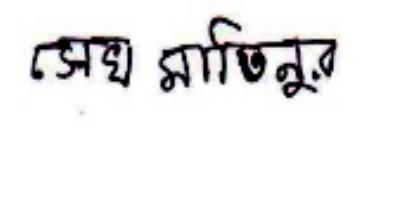 সেখ মাতিনুর